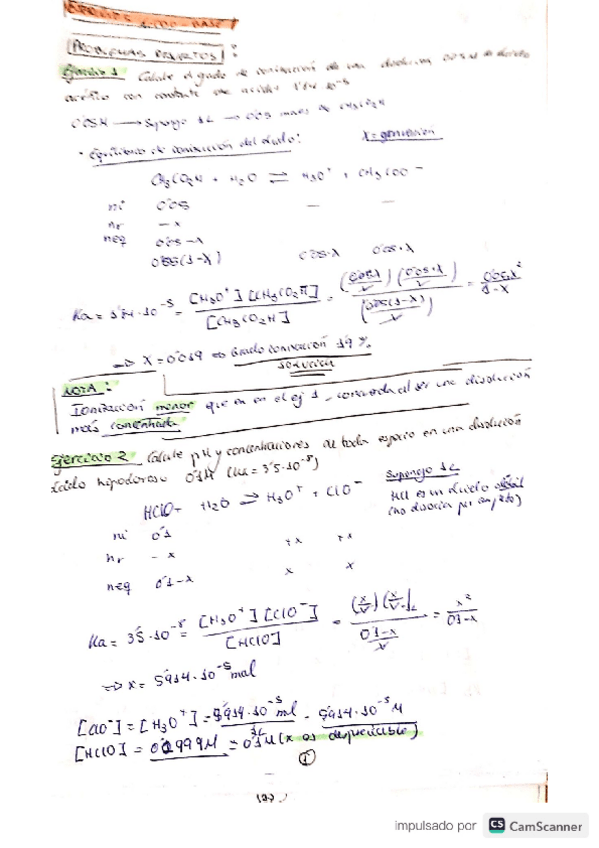 EJERCICIOS ACIDO-BASE
(PROBLEMAS RESUELTOS):
Ejercicio 1 Calcule el grado de ionización de una disolución 0'05 M de ácido
acético con constante de acidez 1'8·10⁻⁵
0'05M → Supongo 1L → 0'05 moles de CH₃CO₂H
· Equilibrio de ionización del ácido: X = grado ionización
CH₃CO₂H + H₂O ⇌ H₃O⁺ + CH₃COO⁻
ni 0'05 — —
nr -x
neq 0'05-x
0'05(1-x) 0'05·x 0'05·x
Ka = ·10⁻⁵ = [H₃O⁺][CH₃CO₂H] / [CH₃CO₂H] = (0'05x/V)(0'05·x/V) / (0'05(1-x)/V) = 0'05x² / 1-x
⇒ x = 0'019 ⇒ Grado ionización 1'9 %
SOLUCION
NOTA:
Ionización menor que en en el ej 1, al ser una disolución
más concentrada
Ejercicio 2 Calcule pH y concentraciones de toda especie en una disolución
ácido hipocloroso 0'1M (Ka = 3'5·10⁻⁸)
HClO + H₂O ⇌ H₃O⁺ + ClO⁻
Supongo 1L
es un ácido débil
(no disocia por completo)
ni 0'1
nr - x +x +x
neq 0'1-x x x
Ka = 3'5·10⁻⁸ = [H₃O⁺][ClO⁻] / [HClO] = (x/V)(x/V) / (0'1-x/V) = x² / 0'1-x
⇒ x = 5'914·10⁻⁵ mol
[ClO⁻] = [H₃O⁺] = 5'914·10⁻⁵ mol / 1L = 5'914·10⁻⁵ M
[HClO] = 0'0999M = 0'1M (x es despreciable)
①
impulsado por CS CamScanner